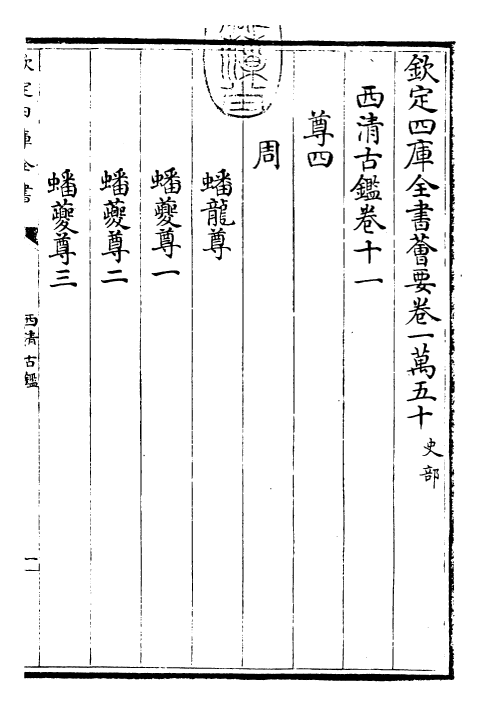 欽定四庫全書薈要卷一萬五十 史部
西清古鑑卷十一
尊四
周
蟠龍尊
蟠夔尊一
蟠夔尊二
蟠夔尊三
欽定四庫全書
西清古鑑
一